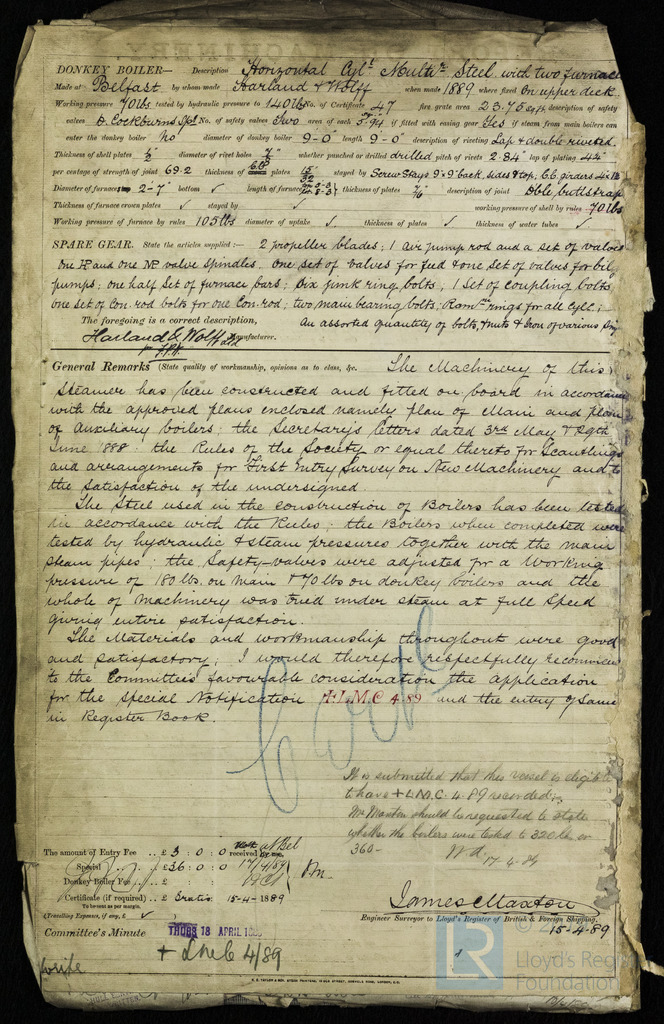 DONKEY BOILER— Description Horizontal Cylr Multr Steel with two furnaces
Made at Belfast by whom made Harland & Wolff when made 1889 where fixed On upper deck
Working pressure 70 lbs tested by hydraulic pressure to 140 lbs No. of Certificate 47 fire grate area 23.76 sq ft description of safety
valves D. Cockburns Spl No. of safety valves Two area of each 5.94 if fitted with easing gear Yes if steam from main boilers can
enter the donkey boiler No diameter of donkey boiler 9-0" length 9-0" description of riveting Lap & double riveted
Thickness of shell plates 1/2 diameter of rivet holes 7/8 whether punched or drilled drilled pitch of rivets 2.84 lap of plating 4 1/4
per centage of strength of joint 69.2 thickness of plates 15/32 stayed by Screw Stays 9 x 9 back, sides & top, 6.6 girders
Diameter of furnace 2-7" bottom ✓ length of furnace thickness of plates 7/16 description of joint Dble butt strap
Thickness of furnace crown plates ✓ stayed by ✓ working pressure of shell by rules 70 lbs
Working pressure of furnace by rules 105 lbs diameter of uptake ✓ thickness of plates ✓ thickness of water tubes ✓
SPARE GEAR. State the articles supplied:— 2 propeller blades; 1 Air pump rod and a set of valves
One HP and one MP valve spindles. One set of valves for feed & one set of valves for bilge
pumps; one half set of furnace bars; Six junk ring bolts; 1 set of coupling bolts
one set of Con. rod bolts for one Con-rod; two main bearing bolts; Ramsns rings for all Cyls;
The foregoing is a correct description, An assorted quantity of bolts, nuts & iron of various
Harland & Wolff Ld Manufacturer.
General Remarks (State quality of workmanship, opinions as to class, &c. The Machinery of this
Steamer has been constructed and fitted on board in accordance
with the approved plans enclosed namely plan of Main and plan
of Auxiliary boilers; the Secretary's letters dated 3rd May & 29th
June 1888: the Rules of the Society or equal thereto for Scantlings
and arrangements for First Entry Survey on New Machinery and to
the satisfaction of the undersigned.
The Steel used in the construction of Boilers has been tested
in accordance with the Rules; the Boilers when completed were
tested by hydraulic & steam pressures together with the main
steam pipes; the Safety-valves were adjusted for a Working
pressure of 180 lbs. on main & 70 lbs on donkey boilers and the
whole of Machinery was tried under steam at full speed
giving entire satisfaction.
The Materials and workmanship throughout were good
and satisfactory; I would therefore respectfully recommend
to the Committee's favourable consideration the application
for the Special Notification +L.M.C 4.89 and the entry of same
in Register Book.
It is submitted that this vessel is eligible
to have +L.M.C. 4.89 recorded.
Mr Maxton should be requested to state
whether the boilers were tested to 320 lbs or
360-
17-4-89
The amount of Entry Fee .. £ 3 : 0 : 0 received by me,
Special .. £36 : 0 : 0 17/4/89
Donkey Boiler Fee .. £ : :
Certificate (if required) .. £ Gratis 15-4-1889
To be sent as per margin.
(Travelling Expenses, if any, £ ✓ )
James Maxton
Engineer Surveyor to Lloyd's Register of British & Foreign Shipping.
15-4-89
Committee's Minute THURS 18 APRIL
+ LMC 4/89
write
LR
Lloyd's Register
Foundation